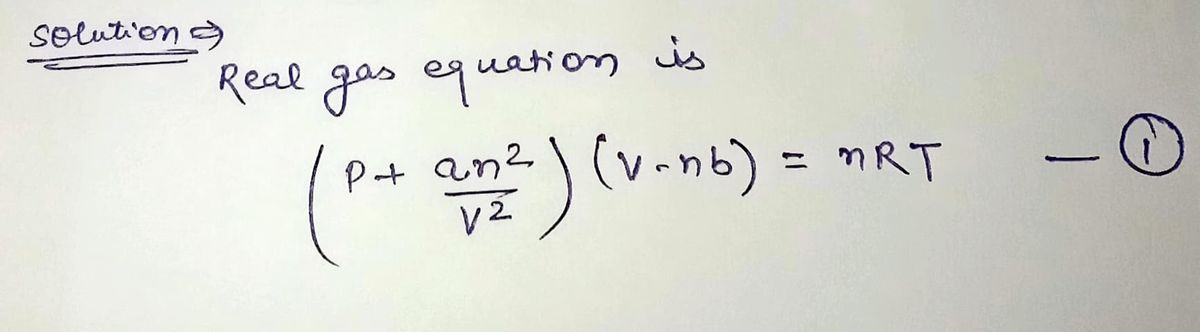 Solution ⇒
Real gas equation is
(P + an²/V²) (V-nb) = nRT — ①